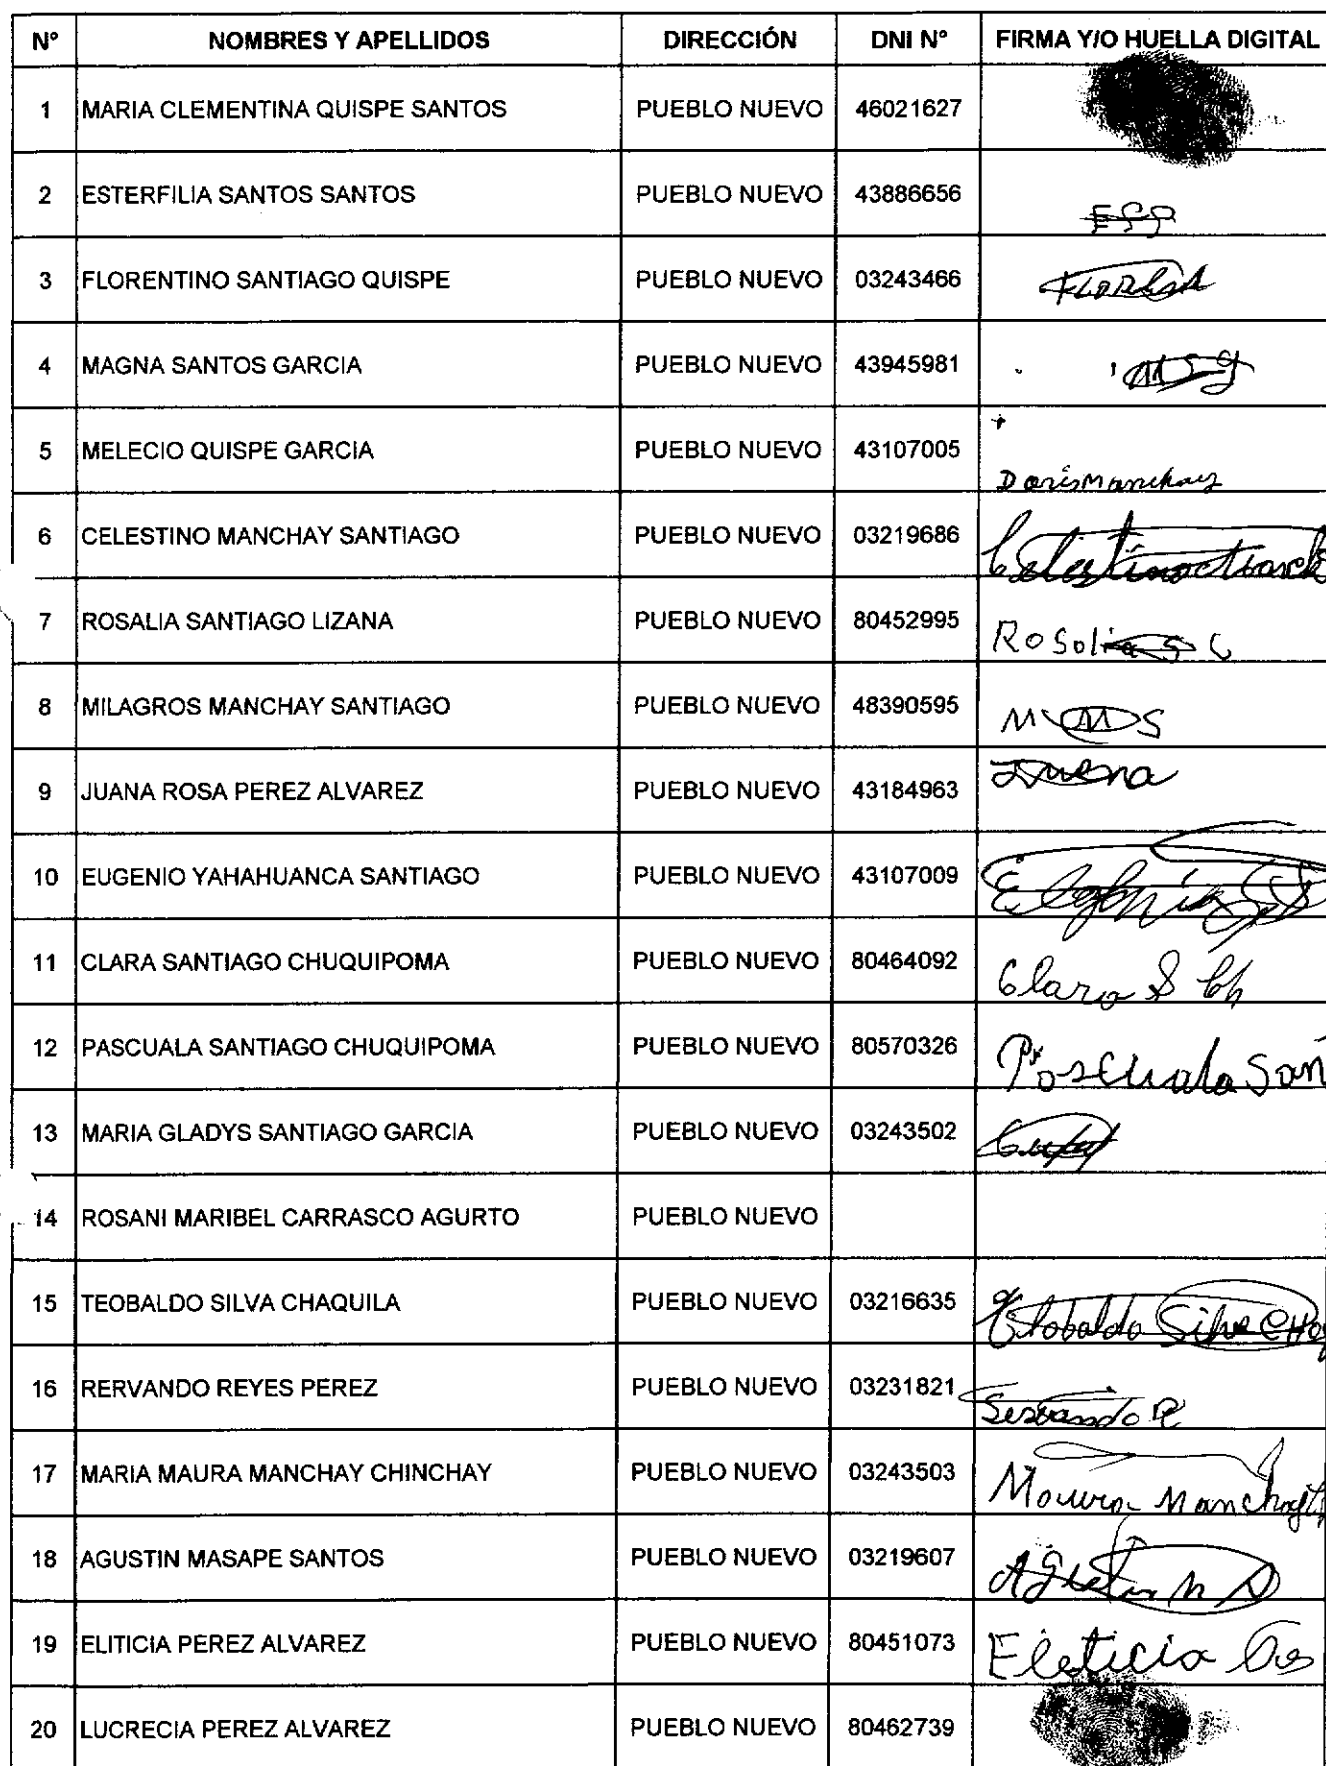 N° NOMBRES Y APELLIDOS DIRECCIÓN DNI N° FIRMA Y/O HUELLA DIGITAL
1 MARIA CLEMENTINA QUISPE SANTOS PUEBLO NUEVO 46021627
2 ESTERFILIA SANTOS SANTOS PUEBLO NUEVO 43886656
3 FLORENTINO SANTIAGO QUISPE PUEBLO NUEVO 03243466
4 MAGNA SANTOS GARCIA PUEBLO NUEVO 43945981 MSg
5 MELECIO QUISPE GARCIA PUEBLO NUEVO 43107005 Doris Manchay
6 CELESTINO MANCHAY SANTIAGO PUEBLO NUEVO 03219686
7 ROSALIA SANTIAGO LIZANA PUEBLO NUEVO 80452995
8 MILAGROS MANCHAY SANTIAGO PUEBLO NUEVO 48390595
9 JUANA ROSA PEREZ ALVAREZ PUEBLO NUEVO 43184963
10 EUGENIO YAHAHUANCA SANTIAGO PUEBLO NUEVO 43107009
11 CLARA SANTIAGO CHUQUIPOMA PUEBLO NUEVO 80464092 Clara S Ch
12 PASCUALA SANTIAGO CHUQUIPOMA PUEBLO NUEVO 80570326 Pascuala San
13 MARIA GLADYS SANTIAGO GARCIA PUEBLO NUEVO 03243502
14 ROSANI MARIBEL CARRASCO AGURTO PUEBLO NUEVO
15 TEOBALDO SILVA CHAQUILA PUEBLO NUEVO 03216635
16 RERVANDO REYES PEREZ PUEBLO NUEVO 03231821
17 MARIA MAURA MANCHAY CHINCHAY PUEBLO NUEVO 03243503
18 AGUSTIN MASAPE SANTOS PUEBLO NUEVO 03219607
19 ELITICIA PEREZ ALVAREZ PUEBLO NUEVO 80451073 Eleticia
20 LUCRECIA PEREZ ALVAREZ PUEBLO NUEVO 80462739